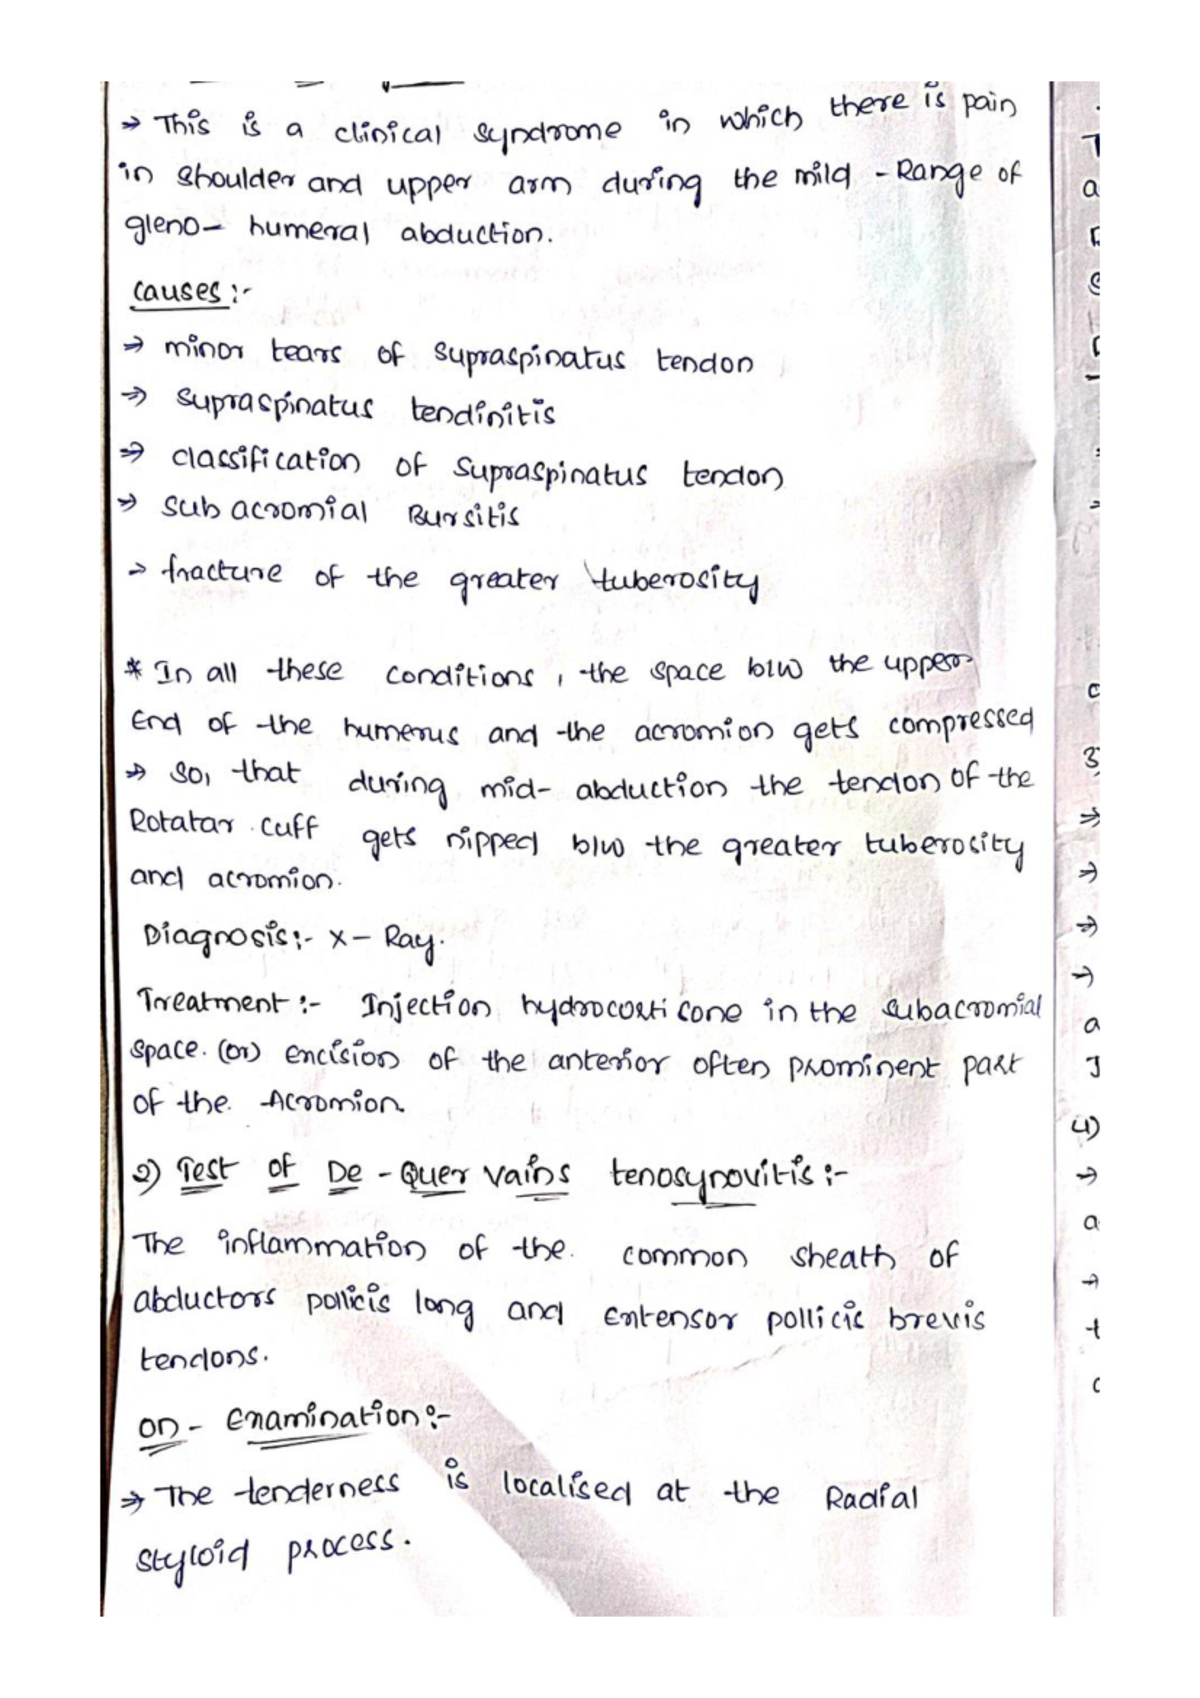 → This is a clinical syndrome in which there is pain
in shoulder and upper arm during the mild - Range of
gleno- humeral abduction.
causes :-
→ minor tears of supraspinatus tendon
→ supraspinatus tendinitis
→ classification of supraspinatus tendon
→ sub acromial Bursitis
→ fracture of the greater tuberosity
* In all these conditions, the space b/w the upper
End of the humerus and the acromion gets compressed
→ so, that during mid- abduction the tendon of the
Rotatar cuff gets nipped b/w the greater tuberosity
and acromion.
Diagnosis:- X- Ray.
Treatment :- Injection hydrocorticone in the subacromial
space. (or) encision of the anterior often prominent part
of the Acromion.
2) Test of De - Quer vains tenosynovitis :-
The inflammation of the common sheath of
abductors pollicis long and Entensor pollicis brevis
tendons.
on - Enamination:-
→ The tenderness is localised at the Radial
styloid process.
3)
4)